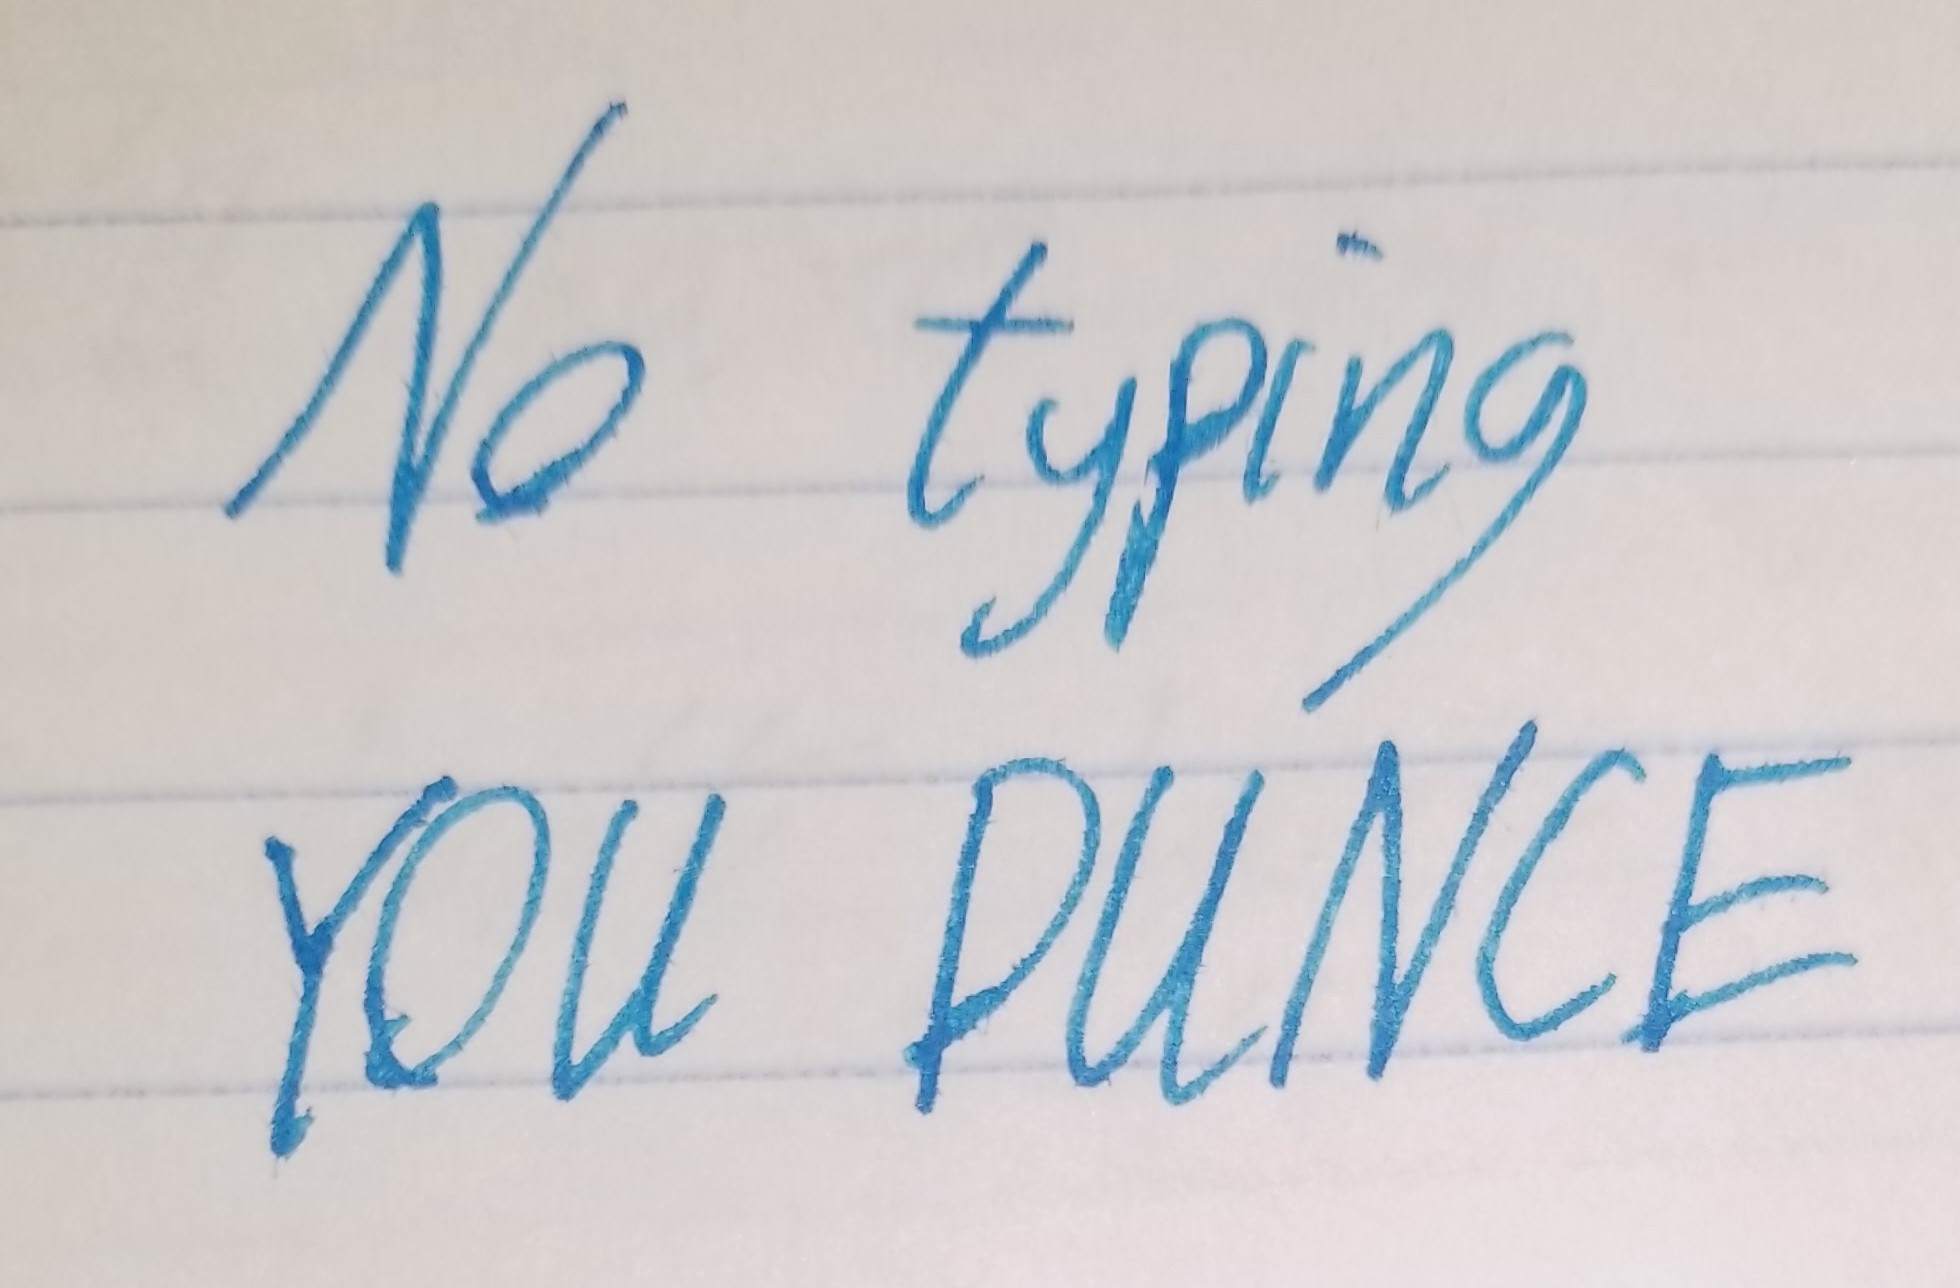 No typing
YOU DUNCE